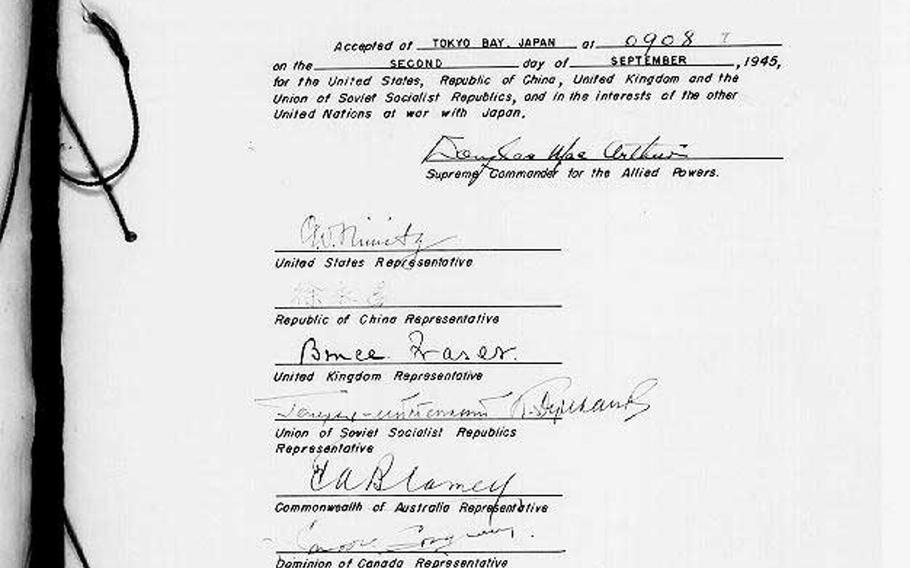 Accepted at TOKYO BAY, JAPAN at 0908 I
on the SECOND day of SEPTEMBER, 1945,
for the United States, Republic of China, United Kingdom and the
Union of Soviet Socialist Republics, and in the interests of the other
United Nations at war with Japan.
Douglas MacArthur
Supreme Commander for the Allied Powers.
C.W. Nimitz
United States Representative
徐永昌
Republic of China Representative
Bruce Fraser
United Kingdom Representative
Генерал-лейтенант К. Деревянко
Union of Soviet Socialist Republics
Representative
T A Blamey
Commonwealth of Australia Representative
Moore Cosgrave
Dominion of Canada Representative